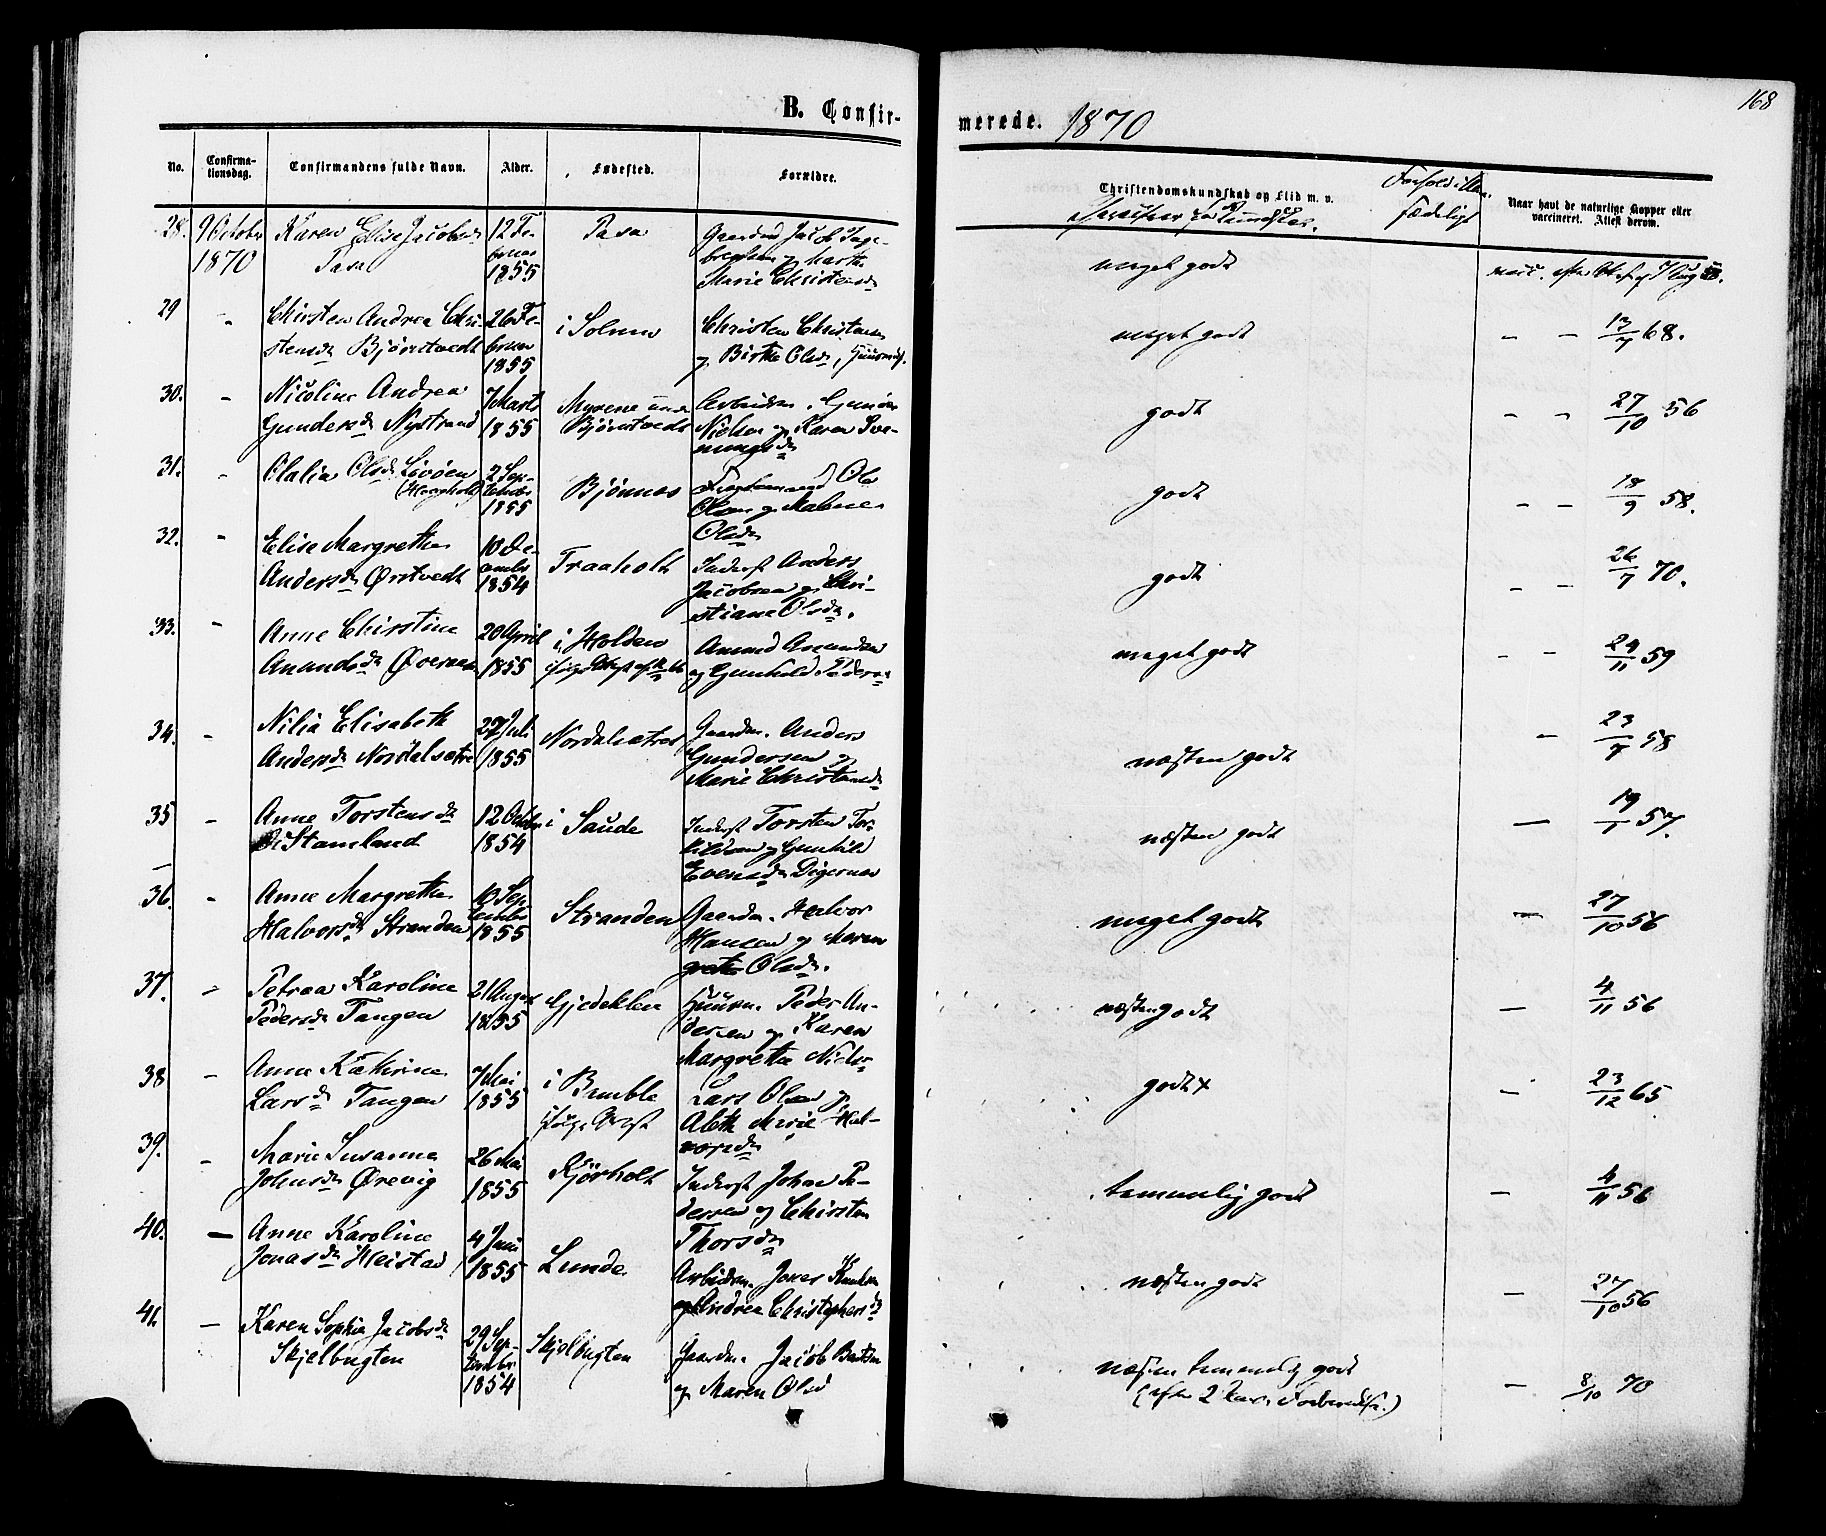 168
B. Confir-
merede. 1870
No.
Confirma-
tionsdag.
Confirmandens fulde Navn.
Alder.
Fødested.
Forældre.
Christendomskundskab og Flid m. v.
sædeligt
Naar havt de naturlige Kopper eller
vaccineret. Attest derom.
28. 9 October 1870
Karen Elise Jacobsd
Tasa
12 Fe-
bruar
1855
Tasa
Gaardm Jacob Inge-
brethsen og Marthe
Marie Christensd
meget godt
vacc. 7 Aug
29 -
Chirsten Andrea Chri-
stensd Bjørntvedt
26 Fe-
bruar
1855
i Solum
Christen Christensen
og Birthe Olsd, Huusm
meget godt
- - 13/7 68.
30. -
Nicoline Andrea
Gundersd Nystrand
7 Marts
1855
Myrene under
Bjørntvedt
Arbeidsm. Gunder
Nielsen og Karen Sve-
nungsd
godt
- - 27/10 56
31. -
Olalia Olsd Sivøen
2 Sep-
tember
1855
Bjønnes
Ole
Olsen og Malene
Olsd
godt
- - 18/9 58.
32. -
Elise Margrethe
Andersd Ørstvedt
10 De-
cembr
1854
Traaholt
Inderst Anders
Jacobsen og Chri-
stiane Olsd.
godt
- - 26/7 70.
33. -
Anne Chirstine
Amundsd Øvernes
20 April
1855
i Holden
Amund Amundsen
og Gunhild Pedersd
meget godt
- - 29/11 59
34. -
Nilia Elisabeth
Andersd Nordalsætre
27 Juli
1855
Nordalsætre
Gaardm. Anders
Gundersen og
Marie Christensd
næsten godt
- 23/7 58
35 -
Anne Torstensd
Stamland
12 Octobr
1854
i Saude
Inderst Torsten Tor-
kildsen og Gunhild
Evensd Digernes
næsten godt
- 19/1 57.
36. -
Anne Margrethe
Halvorsd Stranden
10 Sep
tembr
1855
Stranden
Gaardm. Halvor
Hansen og Maren
grethe Olsd.
meget godt
- 27/10 56
37. -
Petrea Karoline
Pedersd Tangen
21 August
1855
Gjedeklev
Huusm. Peder An-
dersen og Karen
Margrethe Nielsd
næsten godt
- 4/11 56
38 -
Anne Kathrine
Larsd Tangen
7 Mai
1855
i Bamble
Lars Olsen og
Aleth Marie Hal-
vorsd
godt x
- 23/12 65
39. -
Marie Susanna
Johnsd Ørevig
26 Mai
1855
Kjørholt
Inderst Johan Pe-
dersen og Chirsten
Thorsd
temmelig godt
- 4/11 56
40. -
Anne Karoline
Jonasd Heistad
4 Juni
1855
Lunde
Arbeidsm. Jonas Knudsen
og Andrea Christophersd
næsten godt
- 27/10 56
41. -
Karen Sophie Jacobsd
Skjelbugten
29 Sep-
tembr
1854
Skjelbugten
Gaardm. Jacob Bentsen
og Maren Olsd
næsten temmelig godt
(efter 2 Aars Forberedelse.)
- 8/10 70